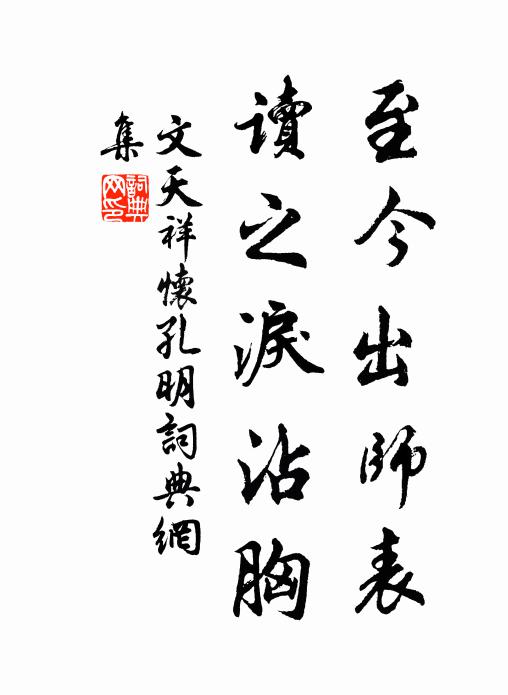 至今出師表
讀之淚沾胸
文天祥懷孔明詞典網
集
詞典
网印